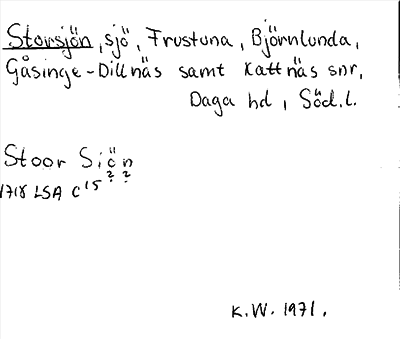 Storsjön, sjö, Frustuna, Björnlunda,
Gåsinge-Dillnäs samt Kattnäs snr,
Daga hd, Söd.l.
Stoor Siön
? ?
1718 LSA C15
K.W. 1971.